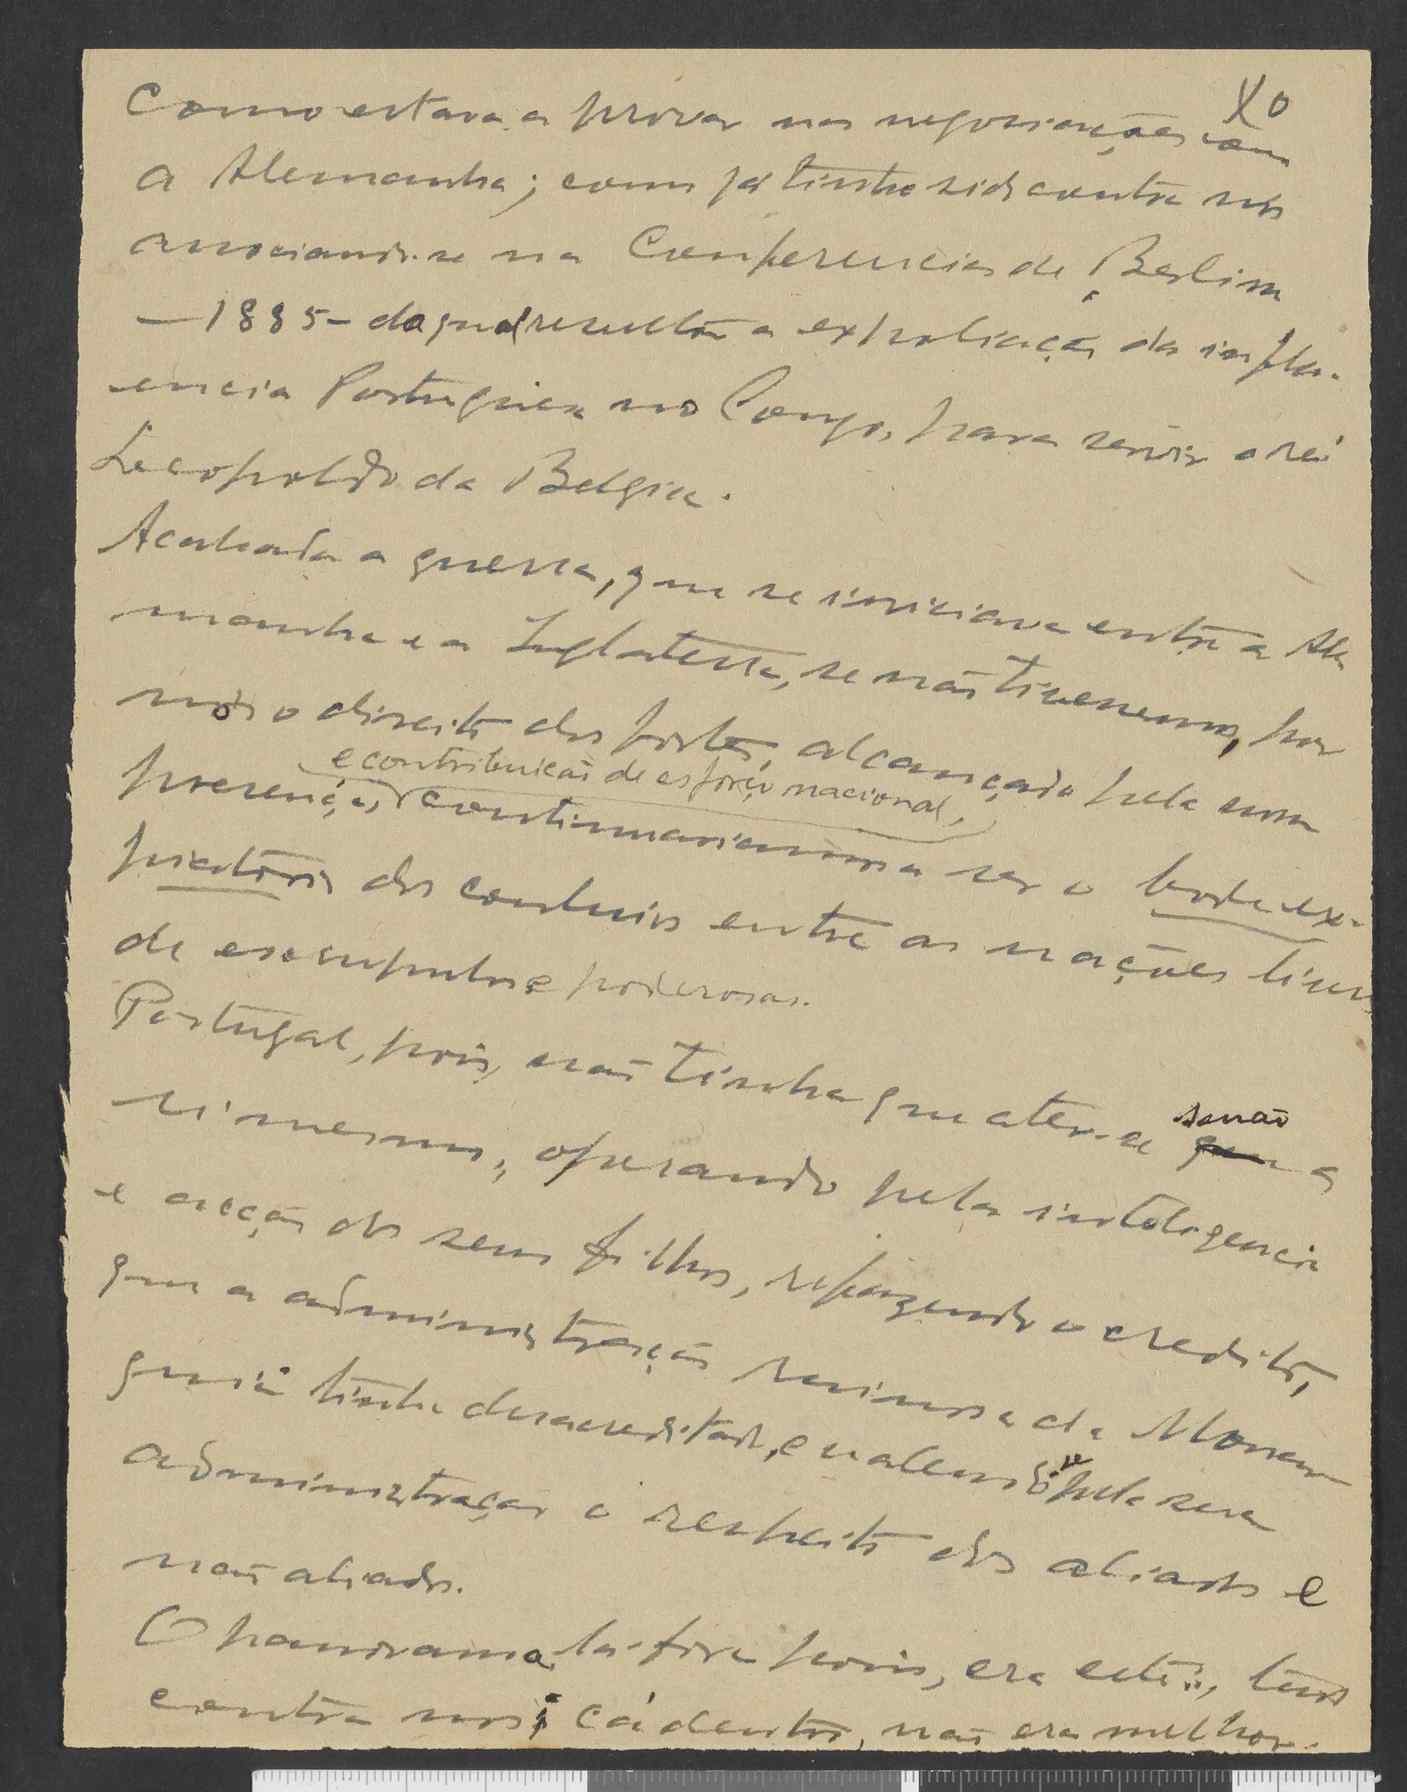 Xo
Como estava a provar nas negociações com
a Alemanha; como já tinha sido contra nós
associando-se na Conferencia de Berlim
—1885— da qual resultou a expoliação da influ-
encia Portuguesa no Congo, para servir o rei
Leopoldo da Belgica.
Acabada a guerra, que se iniciava entre a Ale
manha e a Inglaterra, se não tivessemos, por
nós o direito dos fortes, alcançado pela nossa
e contribuição de esforço nacional,
presença, continuariamos a ser o bode ex-
piatorio dos conluios entre as nações livres
de escrupulos e poderosas.
Portugal, pois, não tinha que ater-se senão a
si mesmo, operando pela inteligencia
e acção dos seus filhos, refazendo o credito,
que a administração ruinosa da Monar
quia tinha desacreditado, e valendo-se pela sua
administração o respeito dos aliados e
não aliados.
O panorama lá-fora pois, era este:, tudo
contra nós; cá dentro, não era melhor.